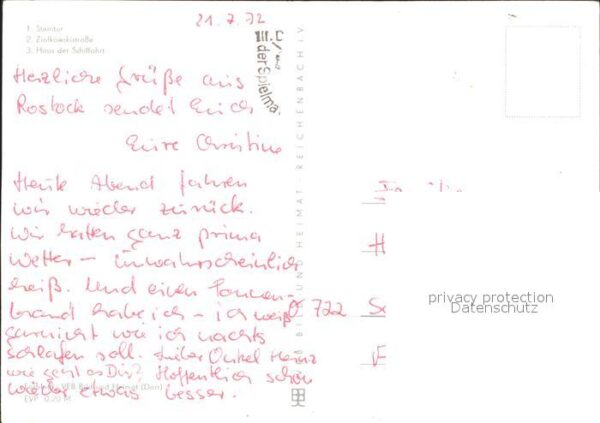 21.7.72
1. Steintor
2. Ziolkowskistraße
3. Haus der Schiffahrt
Herzliche Grüße aus
Rostock sendet Euch
Eure Christine
Heute Abend fahren
wir wieder zurück.
Wir hatten ganz prima
Wetter – unwahrscheinlich
heiß. Und einen Sonnen-
brand habe ich – ich weiß
garnicht wie ich nachts
schlafen soll. Lieber Onkel Heinz
wie geht es Dir? Hoffentlich schon
wieder etwas besser.
VEB Bild und Heimat
EVP 0,20 M
III.
der Spielma
BILD UND HEIMAT · REICHENBACH I. V.
Familie
H
722 Sc
privacy protection
Datenschutz